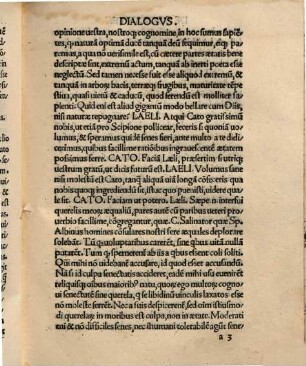 DIALOGVS.
opinione uestra, nostroq; cognomine, in hoc sumus sapiẽ-
tes, q naturã optimã ducẽ tanquã deũ sequimur, eiq; pa-
remus, a qua nõ uerisimile est, cũ cætere partes ætatis bene
descriptæ sint, extremũ actum, tanquã ab inerti poeta esse
neglectũ. Sed tamen necesse fuit esse aliquid extremũ, &
tanquã in arboꝝ bacis, terræq; frugibus, maturitate tẽpe
stiua, quasi uietũ & caducũ, quod ferendũ est molliter sa-
pienti. Quid enĩ est aliud gigantũ modo bellare cum Diis,
nisi naturæ repugnare? LAELI. Atqui Cato gratissimũ
nobis, ut etiã pro Scipione pollicear, feceris, si quoniã uo-
lumus, & speramus qui dẽ senes fieri, ante multo a te didi-
cerimus, quibus facillime rationibus ingrauescentẽ ætatem
possimus ferre. CATO. Faciã Læli, præsertim si utriq;
uestrum gratũ, ut dicis futurũ est. LAELI. Volumus sane
nisi molestũ est Cato, tanq̃ aliquã uiã longã cõfeceris: qua
nobis quoq; ingrediendũ sit, istuc quo puenisti, uidere qua
le sit. CATO. Faciam ut potero. Læli. Sæpe n. interfui
querelis meoꝝ æqualiũ, pares autẽ cũ paribus ueteri pro
uerbio facillime, cõgregantur, quæ. C. Salinator quæ Sp.
Albinus homines cõsulares nostri fere æquales deplorare
solebãt. Tũ q uoluptatibus carerẽt, sine qbus uitã nullã
putarẽt. Tum q spernerent̃ ab iis a qbus essent coli soliti.
Qui mihi nõ uidebant̃ accusare, id quod esset accusandũ.
Nã si id culpa senectutis accideret, eadẽ mihi usu euenirẽt
reliquisq; oĩbus maioribꝰ natu, quoꝝ ego multoꝝ cogno-
ui senectutẽ sine querela, q se libidinũ uinculis laxatos es-
se nõ moleste ferrent. Nec a suis despicerent̃, sed oĩm istiusmo-
di querelaꝝ in moribus est culpa, non in ætate. Moderati
enĩ & nõ difficiles senes, nec ĩhumani tolerabilẽ agũt sene-
a 3